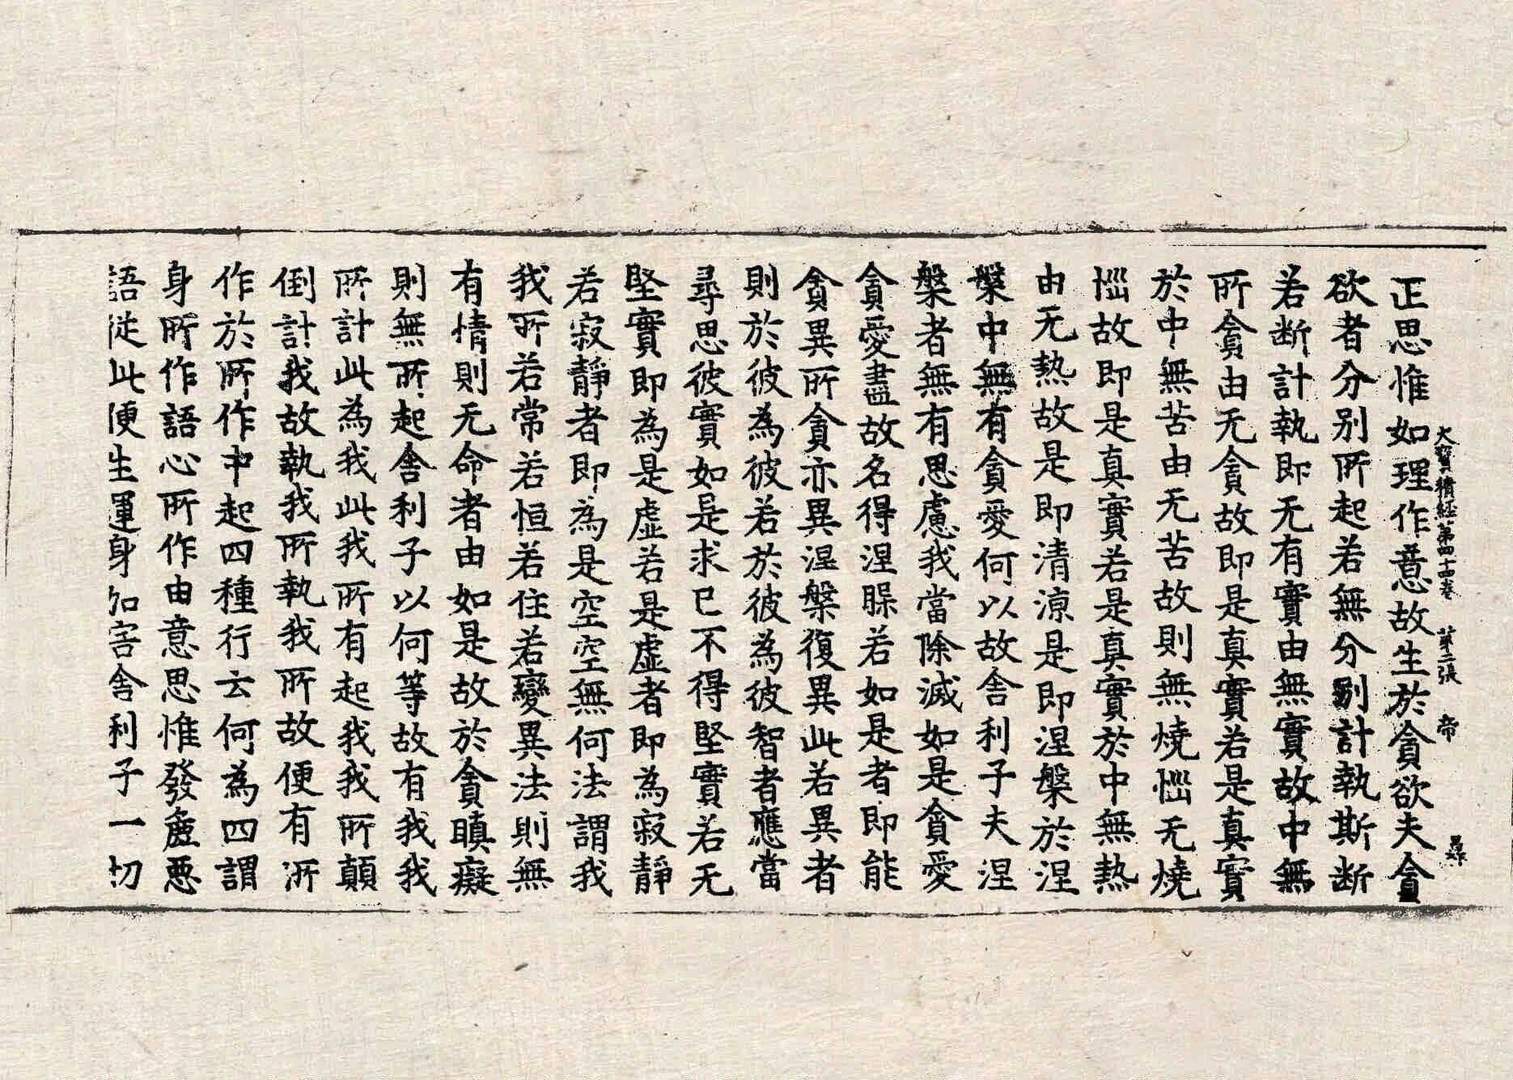 大寶積経第四十四卷 第三張 帝
正思惟如理作意故生於貪欲夫貪
欲者分別所起若無分別計執斯断
若断計執即无有實由無實故中無
所貪由无貪故即是真實若是真實
於中無苦由无苦故則無燒惱无燒
惱故即是真實若是真實於中無熱
由无熱故是即清涼是即涅槃於涅
槃中無有貪愛何以故舍利子夫涅
槃者無有思慮我當除滅如是貪愛
貪愛盡故名得涅槃若如是者即能
貪異所貪亦異涅槃復異此若異者
則於彼為彼若於彼為彼智者應當
尋思彼實如是求已不得堅實若无
堅實即為是虛若是虛者即為寂靜
若寂靜者即為是空空無何法謂我
我所若常若恒若住若變異法則無
有情則无命者由如是故於貪瞋癡
則無所起舍利子以何等故有我我
所計此為我此我所有起我我所顛
倒計我故執我所執我所故便有所
作於所作中起四種行云何為四謂
身所作語心所作由意思惟發麁惡
語從此便生運身加害舍利子一切